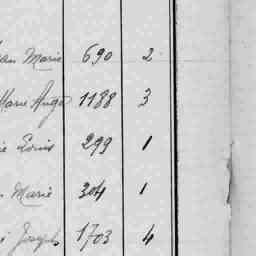 Marie 690 2
Marie Ange 1188 3
Louis 299 1
Marie 304 1
Joseph 1703 4